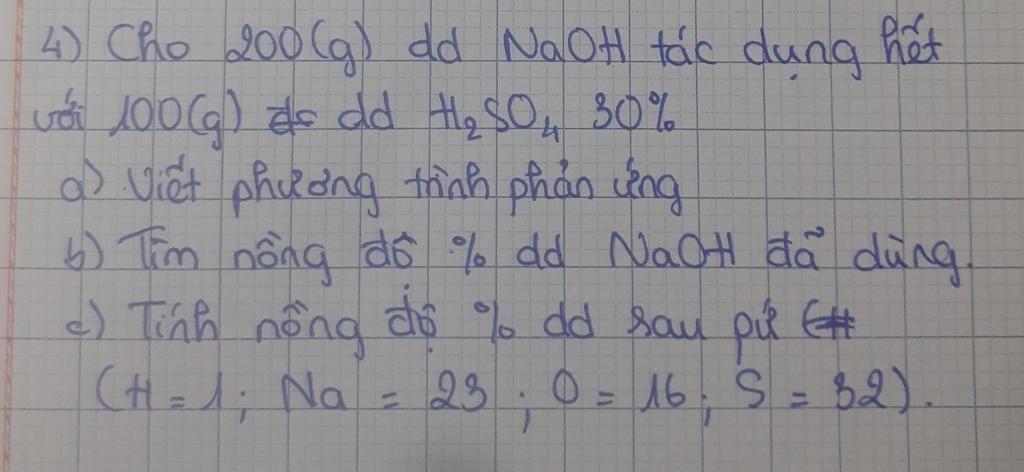 4) Cho 200(g) dd NaOH tác dụng hết
với 100(g) dd H₂SO₄ 30%
a) Viết phương trình phản ứng
b) Tìm nồng độ % dd NaOH đã dùng.
c) Tính nồng độ % dd sau pứ
(H = 1; Na = 23; O = 16; S = 32).